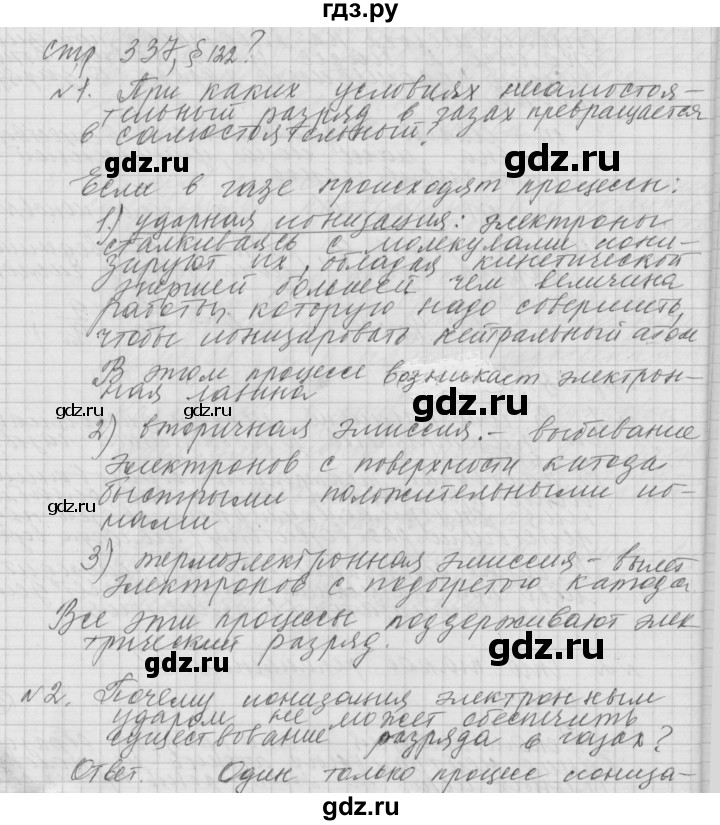 гдз.ру
стр 337, § 122?
№1. При каких условиях несамостоя-
тельный разряд в газах превращается
в самостоятельный?
gdz.ru
gdz.ru
Если в газе происходят процессы:
1) ударная ионизация: электроны
сталкиваясь с молекулами иони-
зируют их, обладая кинетической
энергией большей чем величина
работы, которую надо совершить,
чтобы ионизировать нейтральный атом
В этом процессе возникает электрон-
ная лавина
gdz.ru
gdz.ru
2) вторичная эмиссия. - выбивание
электронов с поверхности катода
быстрыми положительными ио-
нами
gdz.ru
gdz.ru
3) термоэлектронная эмиссия - вылет
электронов с подогретого катода
Все эти процессы поддерживают элек
трический разряд.
gdz.ru
gdz.ru
№2. Почему ионизация электронным
ударом не может обеспечить
существование разряда в газах?
gdz.ru
gdz.ru
Ответ. Один только процесс иониза-
gdz.ru